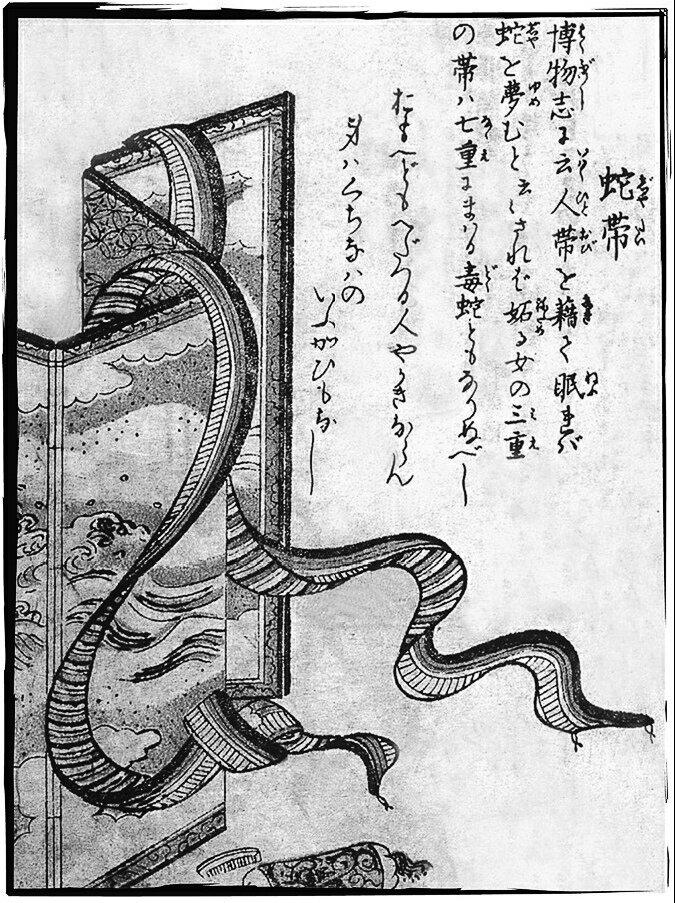 蛇帯
博物志に云人帯を藉て眠れバ
蛇を夢むと云〻されば妬る女の三重
の帯ハ七重にまはる毒蛇ともなりぬべし
おもへどもへだつる人やかきならん
身ハくちなハの
いふかひもなし